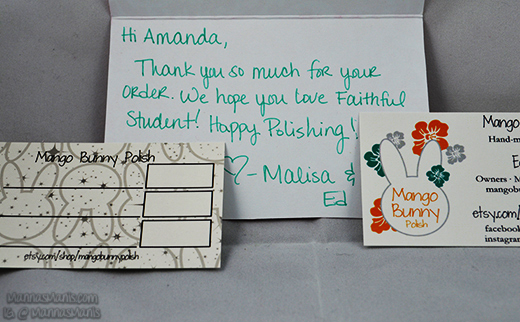 Hi Amanda,
Thank you so much for your
order. We hope you love Faithful
Student! Happy Polishing!
♡- Malisa &
Ed
Mango Bunny Polish
etsy.com/shop/mangobunnypolish
Mango
Hand-m
Ed
Owners · M
mangobu
etsy.com/
facebook
instagram
Mango
Bunny
Polish
MannasManis.com
IG @MannasManis